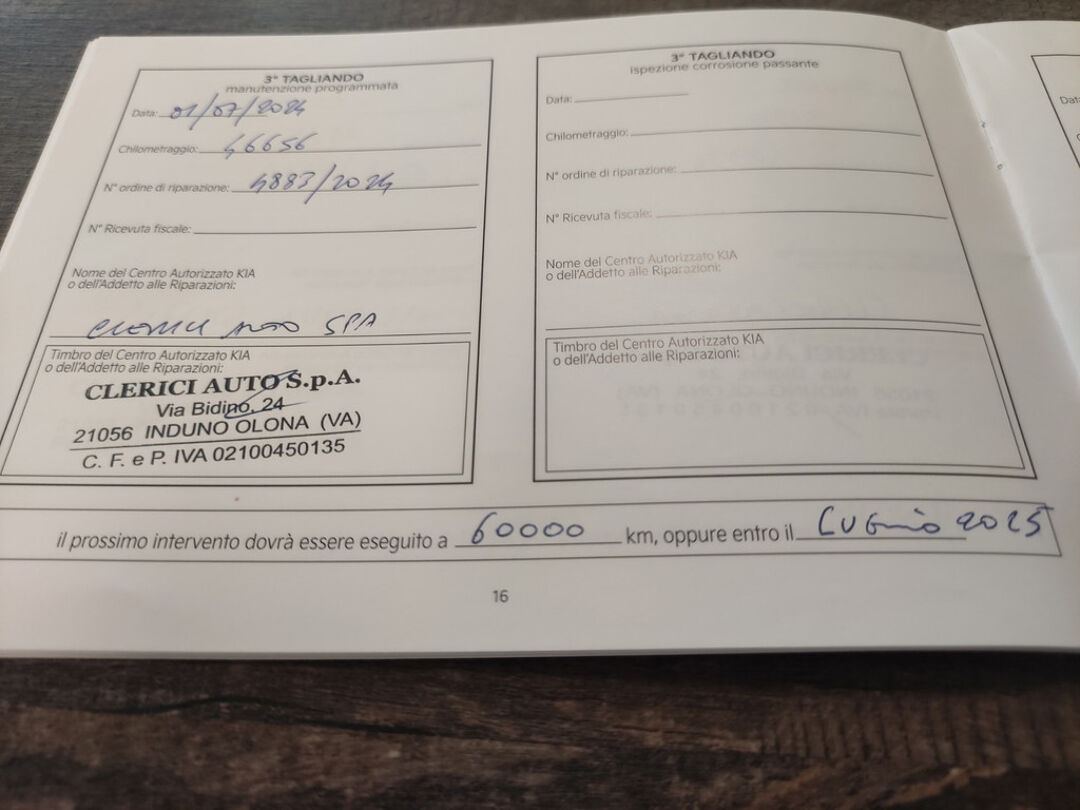 3° TAGLIANDO
manutenzione programmata
Data: 01/07/2024
Chilometraggio: 46656
N° ordine di riparazione: 4883/2024
N° Ricevuta fiscale:
Nome del Centro Autorizzato KIA
o dell'Addetto alle Riparazioni:
CLERICI AUTO SPA
Timbro del Centro Autorizzato KIA
o dell'Addetto alle Riparazioni:
CLERICI AUTO S.p.A.
Via Bidino, 24
21056 INDUNO OLONA (VA)
C. F. e P. IVA 02100450135
3° TAGLIANDO
ispezione corrosione passante
Data:
Chilometraggio:
N° ordine di riparazione:
N° Ricevuta fiscale:
Nome del Centro Autorizzato KIA
o dell'Addetto alle Riparazioni:
Timbro del Centro Autorizzato KIA
o dell'Addetto alle Riparazioni:
il prossimo intervento dovrà essere eseguito a 60000 km, oppure entro il Luglio 2025
16